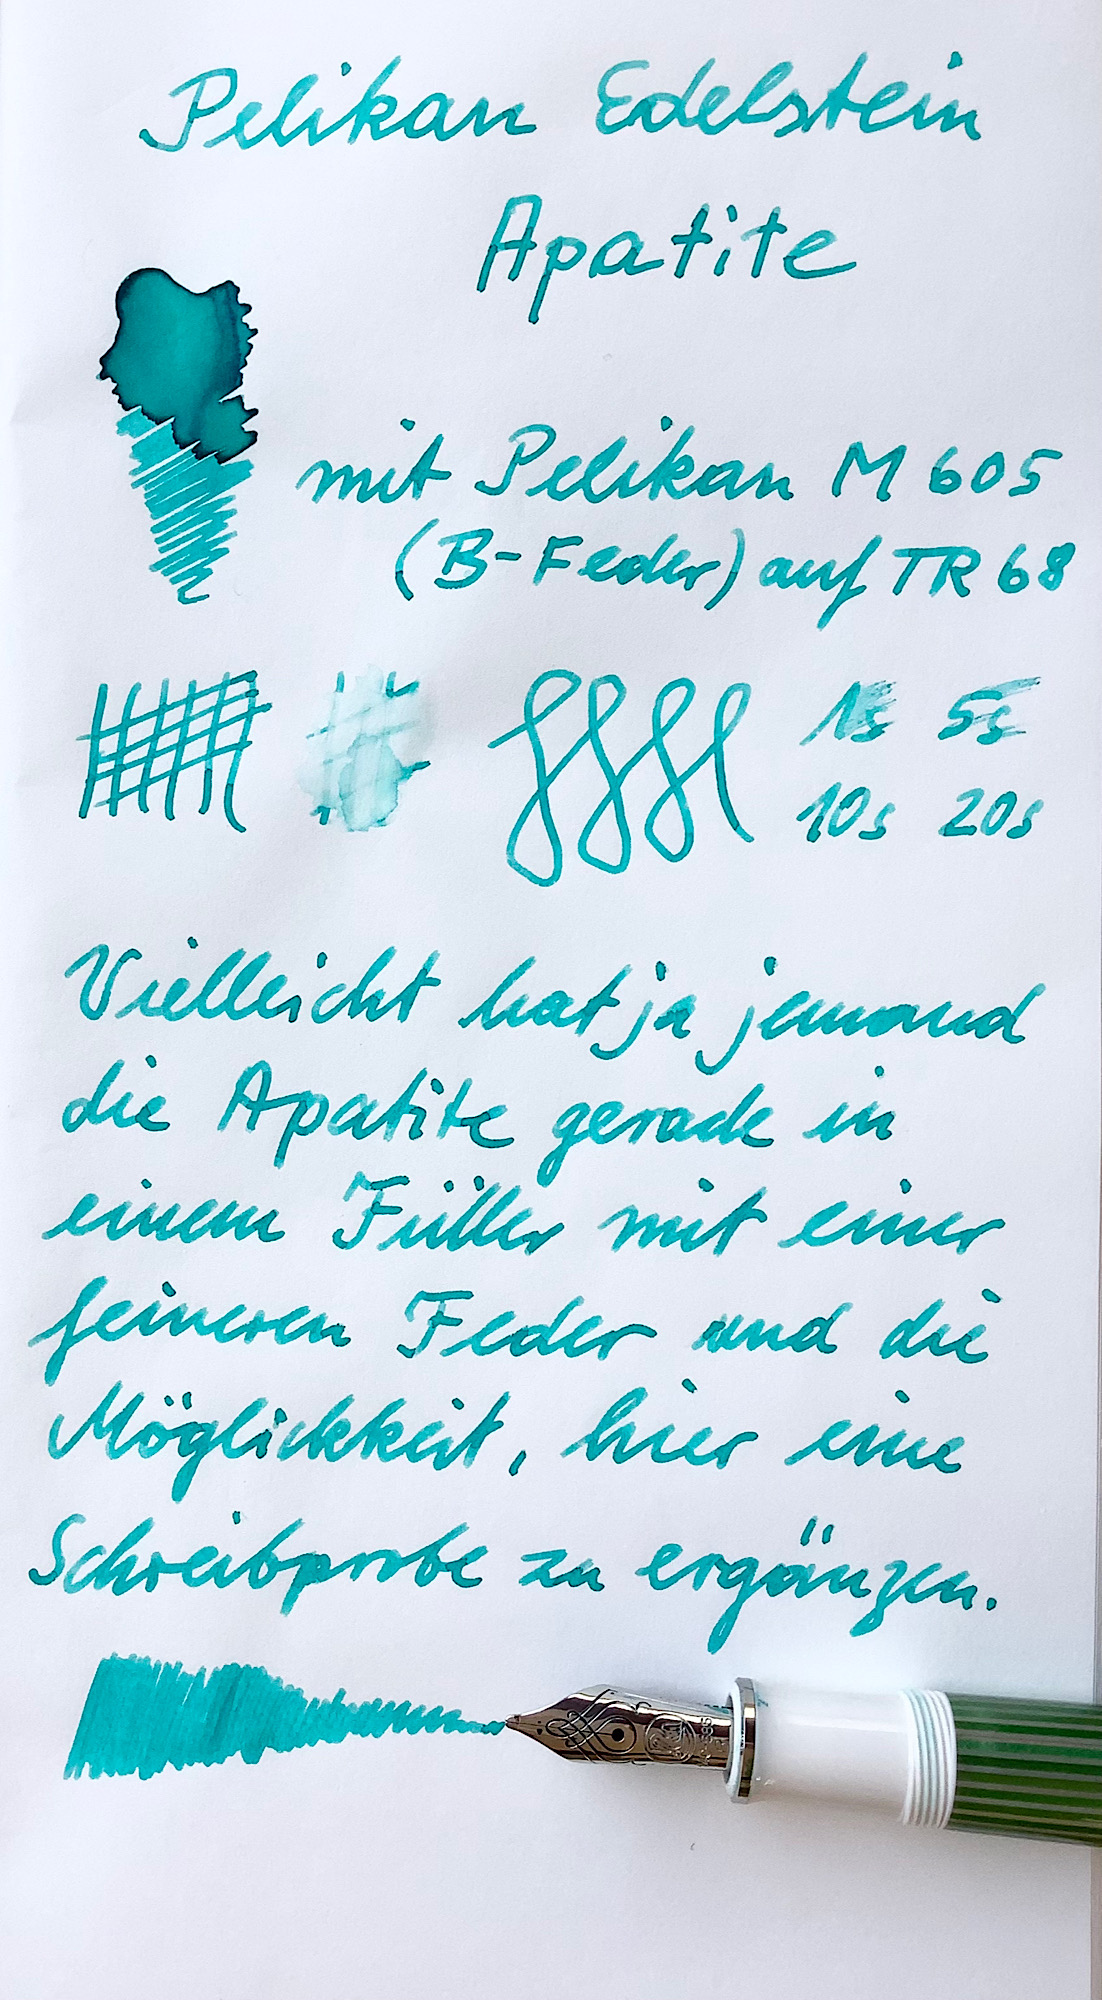 Pelikan Edelstein
Apatite
mit Pelikan M 605
(B-Feder) auf TR 68
1s 5s
10s 20s
Vielleicht hat ja jemand
die Apatite gerade in
einem Füller mit einer
feineren Feder und die
Möglichkeit, hier eine
Schreibprobe zu ergänzen.
585